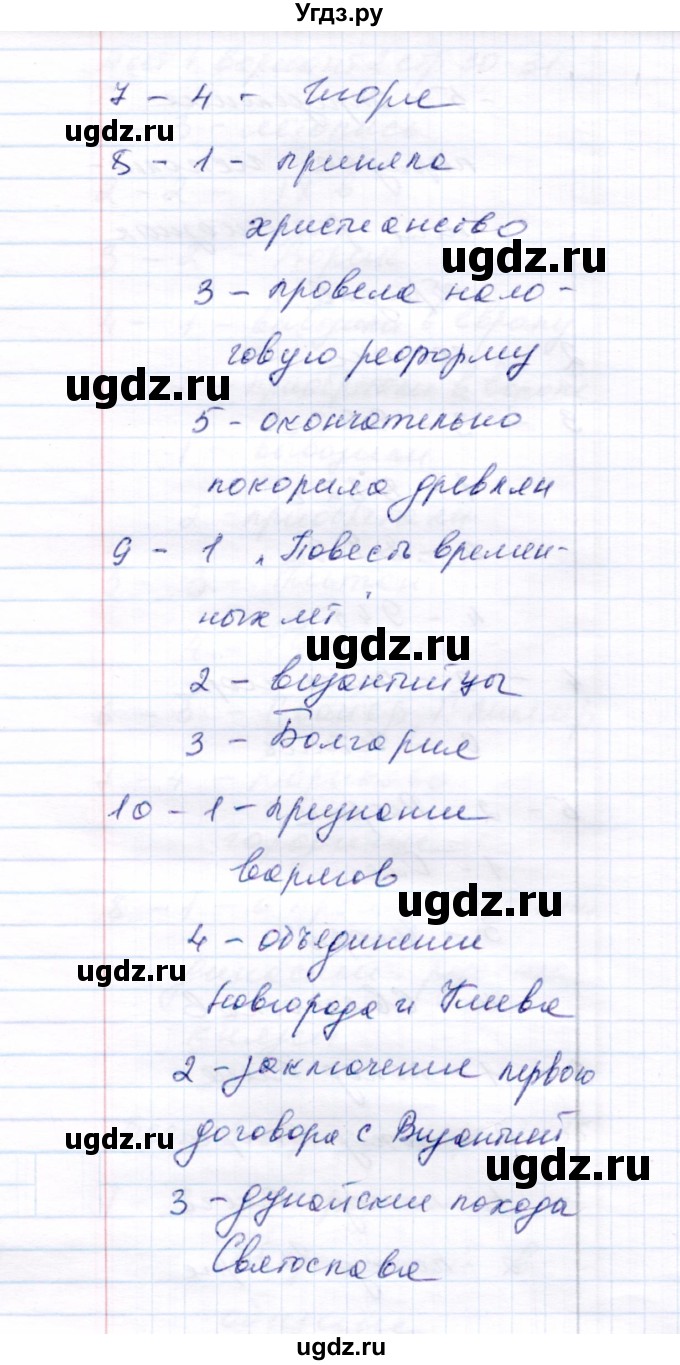 Угдз.ру
7 - 4 - Игоря
ugdz.ru
8 - 1 - приняла
христианство
ugdz.ru
3 - провела нало-
говую реформу
ugdz.ru
5 - окончательно
покорила древлян
9 - 1 „Повесть времен-
ных лет"
ugdz.ru
2 - византийцы
3 - Болгария
10 - 1 - призвание
варягов
ugdz.ru
4 - объединение
ugdz.ru
Новгорода и Киева
2 - заключение первого
договора с Византией
ugdz.ru
ugdz.ru
3 - дунайские похода
Святослава
ugdz.ru